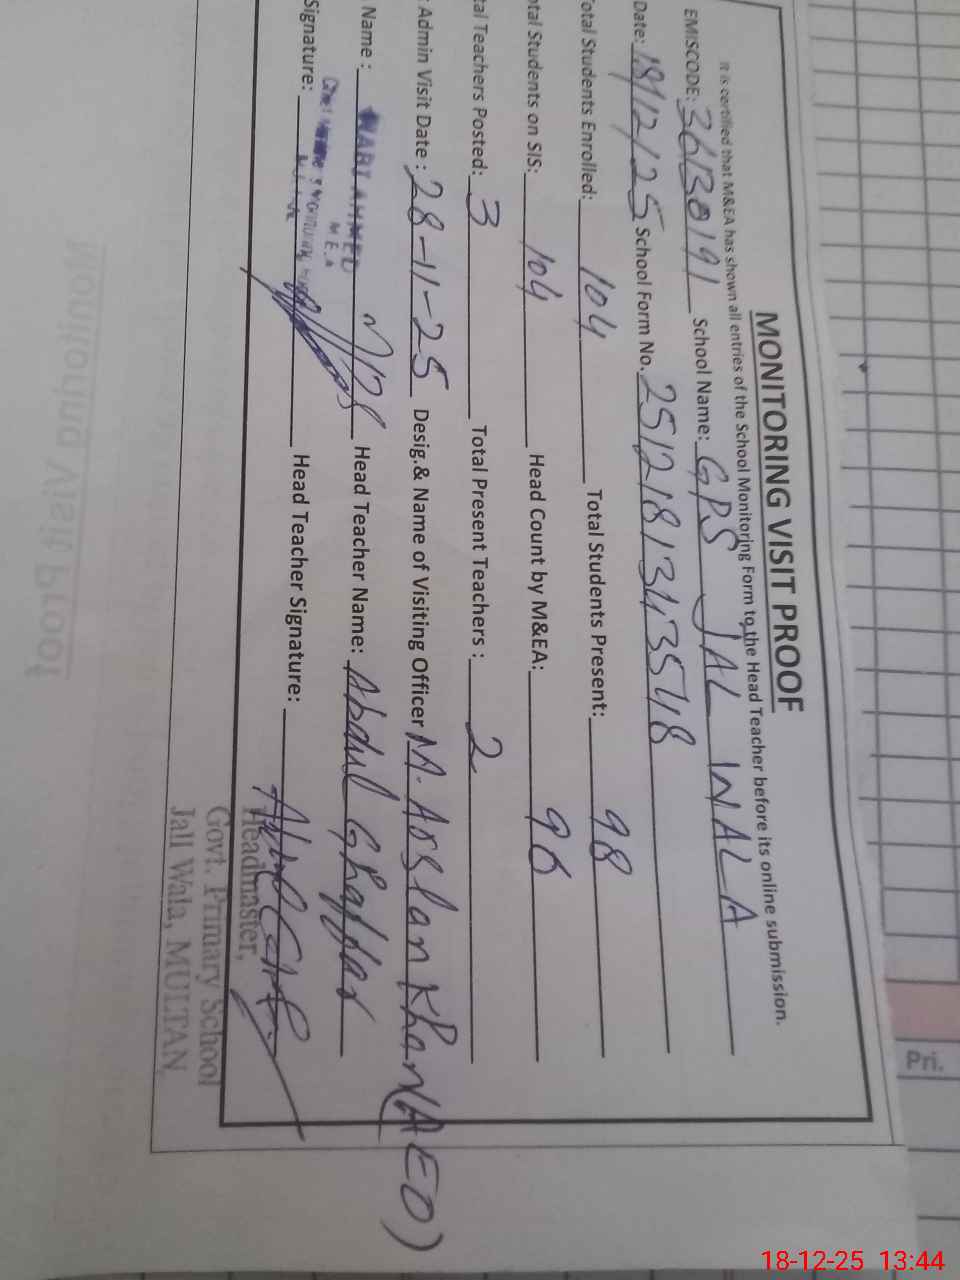 MONITORING VISIT PROOF
It is certified that M&EA has shown all entries of the School Monitoring Form to the Head Teacher before its online submission.
EMISCODE: 36130191 School Name: GPS JAL WALA
Date: 18/12/25 School Form No. 2512181343548
otal Students Enrolled: 104 Total Students Present: 98
otal Students on SIS: 104 Head Count by M&EA: 96
tal Teachers Posted: 3 Total Present Teachers : 2
: Admin Visit Date : 28-11-25 Desig.& Name of Visiting Officer M. Arslan Khan (AEO)
Name : AHMED 128 Head Teacher Name: Abdul Ghaffar
M E A
Signature: Head Teacher Signature:
Headmaster,
Govt. Primary School
Jall Wala, MULTAN
Pri.
18-12-25 13:44